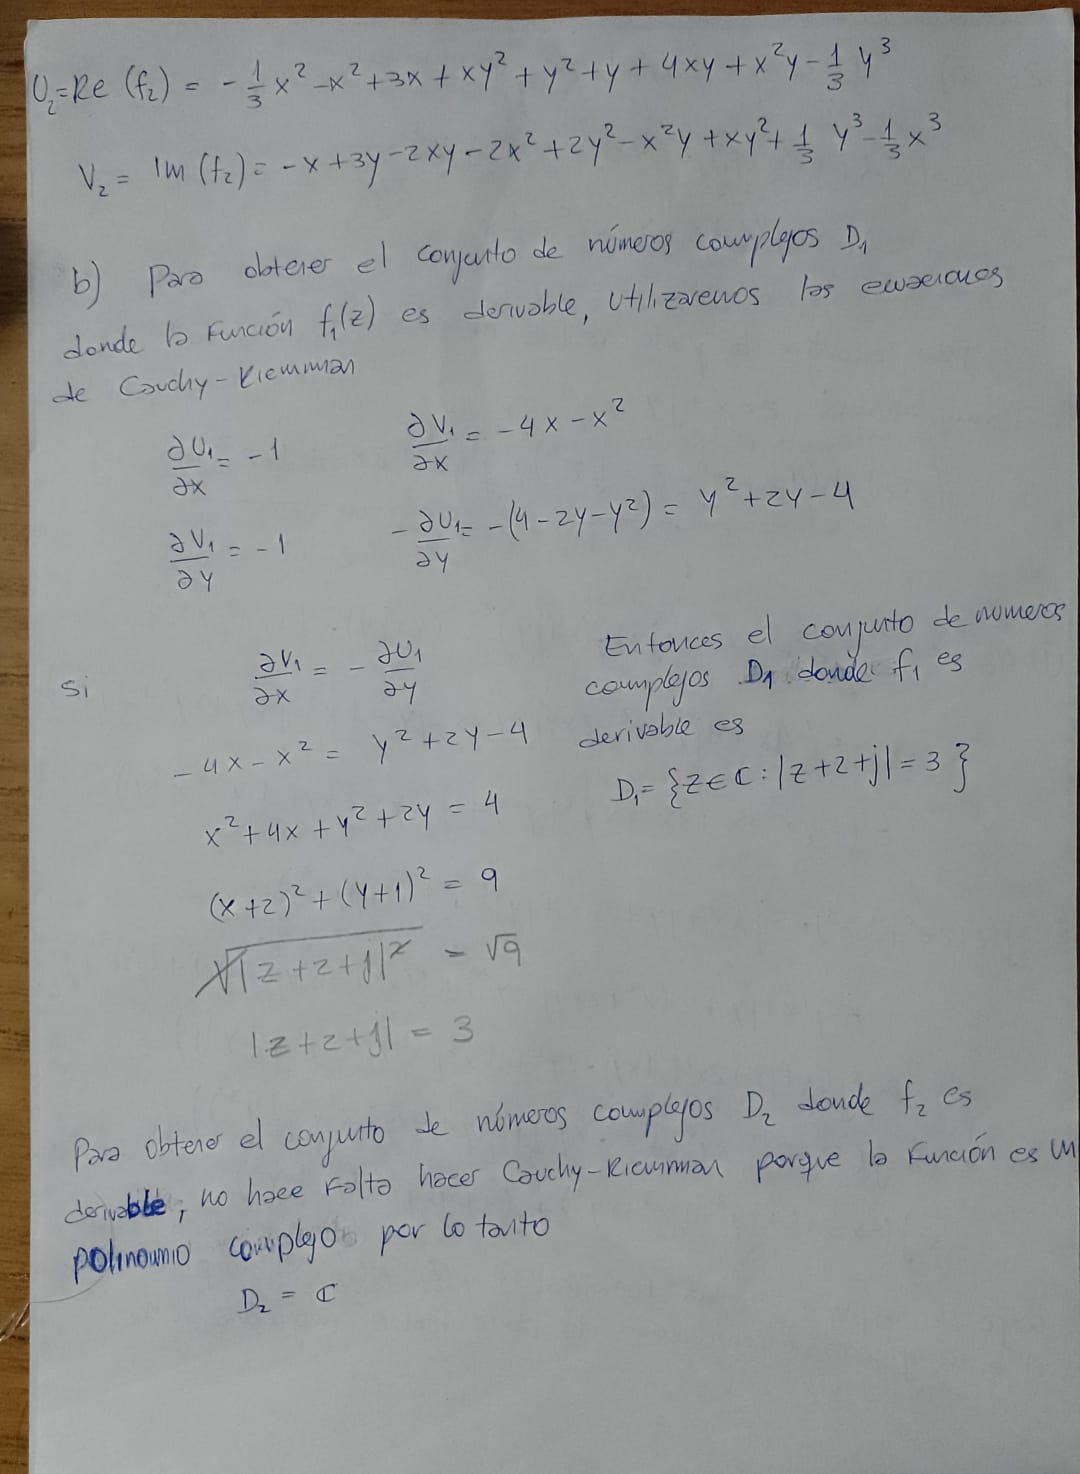 U₂=Re (f₂) = -1/3 x² - x² + 3x + xy² + y² + y + 4xy + x²y - 1/3 y³
V₂ = Im (f₂) = -x + 3y - 2xy - 2x² + 2y² - x²y + xy² + 1/3 y³ - 1/3 x³
b) Para obtener el conjunto de números complejos D₁
donde la función f₁(z) es derivable, utilizaremos las ecuaciones
de Cauchy-Riemman
∂U₁/∂x = -1 ∂V₁/∂x = -4x - x²
∂V₁/∂y = -1 -∂U₁/∂y = -(4-2y-y²) = y²+2y-4
Si ∂V₁/∂x = -∂U₁/∂y
-4x - x² = y²+2y-4
x²+4x+y²+2y = 4
(x+2)²+(y+1)² = 9
√|z+2+j|² = √9
|z+2+j| = 3
Entonces el conjunto de numeros
complejos D₁ donde f₁ es
derivable es
D₁= {z∈ℂ : |z+2+j| = 3}
Para obtener el conjunto de números complejos D₂ donde f₂ es
derivable, no hace falta hacer Cauchy-Riemman porque la función es un
polinomio complejo por lo tanto
D₂ = ℂ